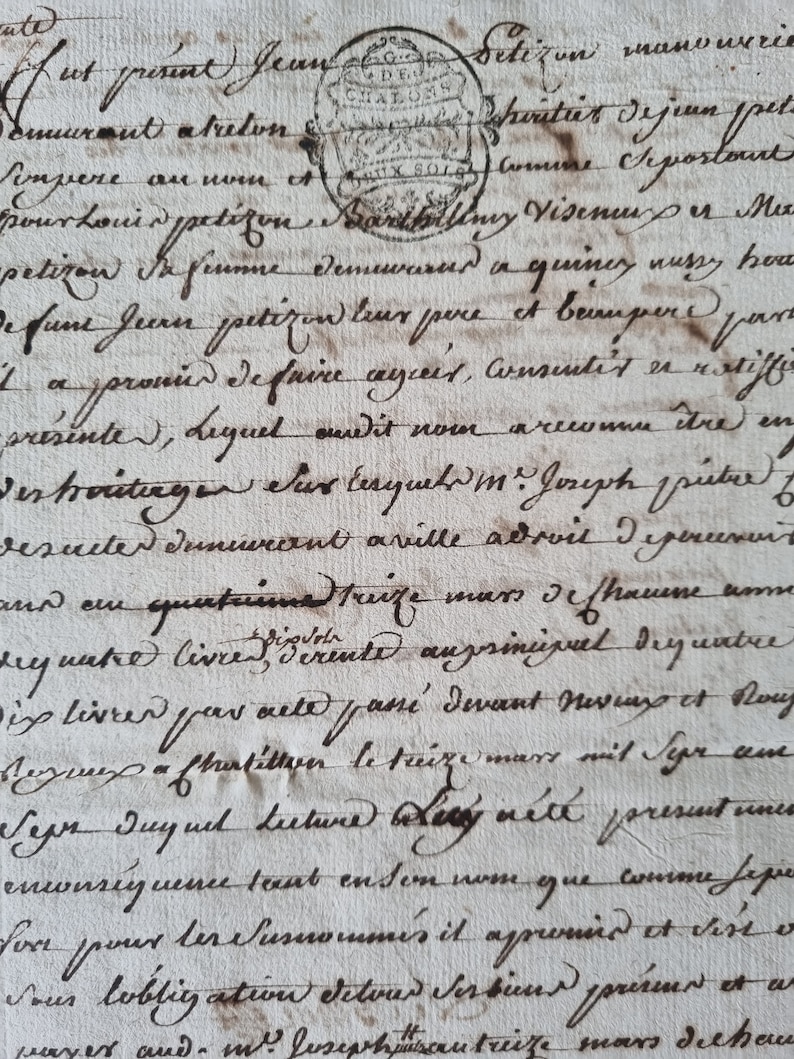 fut présent Jean petizon manouvrie
G. DE CHALONS
DEUX SOLS
demeurant a trelon heritier de jean peti
Son pere au nom et comme se portant
pour Louis petizon Barthelemy Viseneux et Ma
petizon sa femme demeurans a quincy aussy
defunt Jean petizon leur pere et beaupere par
il a promis de faire agréer, Consentir et ratiffi
présentes, Lequel audit nom a reconnu être en
des heritages Sur lesquels Mr. Joseph pietre
demeurant a ville a droit de percevoir
ans au quatrieme treize mars de Chacune anné
de quatre livres dix Sols de rente au principal de quatre
dix livres par acte passé devant et
Royaux a Chatillon le treize mars mil Sept cent
Sept duquel Lecture Luy a été presentemen
en conséquence tant en son nom que comme se po
fort pour les Susnommés il a promis et s'est
Sous l'obligation de tous ses biens présens et a
payer aud. Mr. Joseph au treize mars de chac